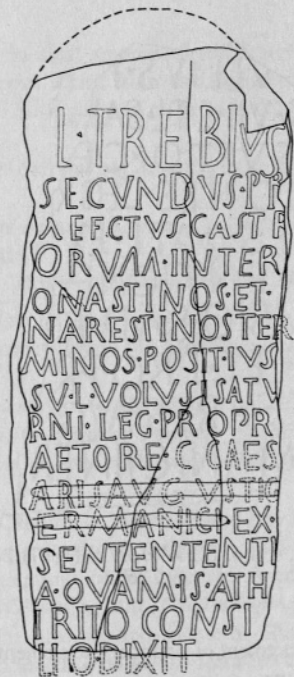 L·TREBIVS
SECVNDVS·PR
AEFCTVSCASTR
ORVM·INTER
ONASTINOS·ET·
NARESTINOSTER
MINOS·POSIT·IVS
SV·L·VOLVSISATV
RNI·LEG·PROPR
AETORE·C CAES
ARISAVG VSTIG
ERMANICI·EX·
SENTENTENTI
A·QVAM·IS·ATH
IRITO CONSI
LIO·DIXIT